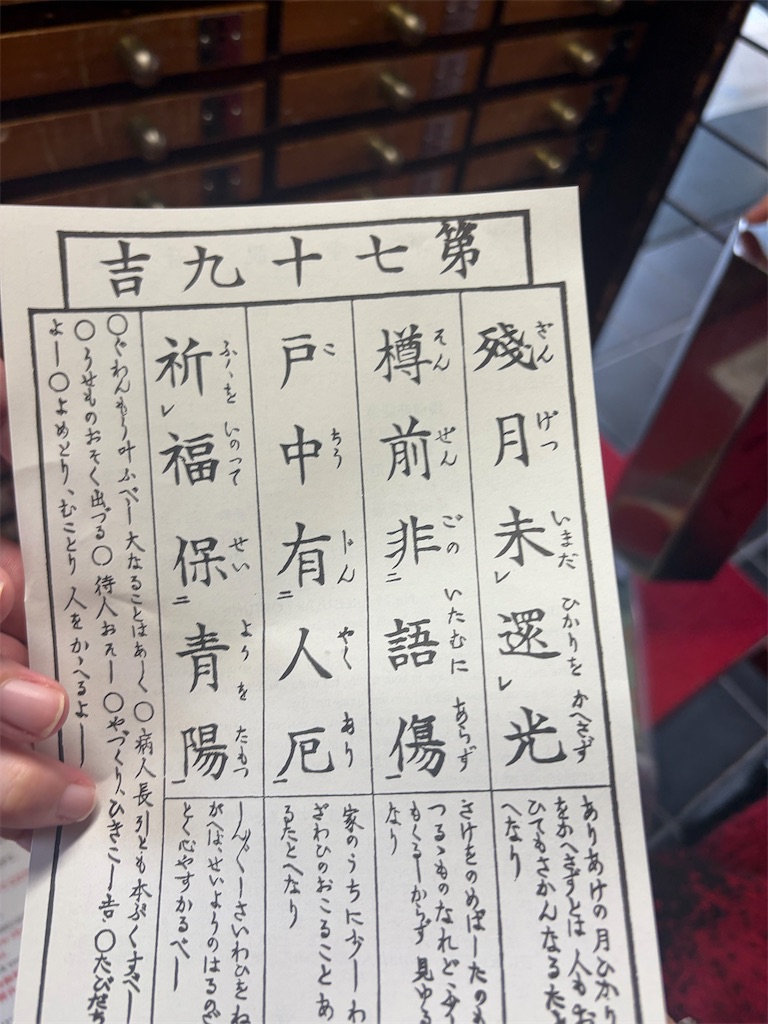 第七十九吉
殘月未レ還レ光
ざんげついまだひかりをかへさず
ありあけの月ひかり
をかへさずとは 人もお
ひてもさかんなるたと
へなり
樽前非二語傷一
そんぜんごのいたむにあらず
さけをのめばしたのも
つるゝものなれど
もくるしからず 見ゆる
なり
戸中有二人厄一
こちうじんやくあり
家のうちに少しわ
ざわひのおこることあ
るたとへなり
祈レ福保二青陽一
ふくをいのつてせいようをたもつ
さいわひをね
がへば、せいようのはるのご
とく心やすかるべし
○ぐわんもう叶ふべし 大なることはあしく ○病人長引とも本ぷくすべし
○うせものおそく出づる ○待人おそし ○やづくり、ひきこし吉 ○たびだち
よし ○よめとり、むことり 人をかゝへるよし